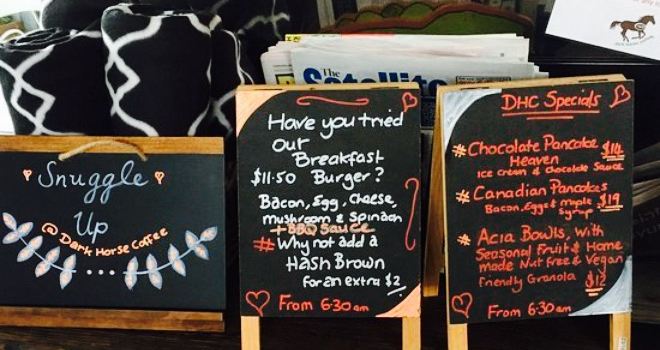 Snuggle
Up
@ Dark Horse Coffee
The
Satellite
Have you tried
our
Breakfast
$11.50 Burger?
Bacon, Egg, Cheese,
mushroom & Spinach
+ BBQ Sauce
# Why not add a
Hash Brown
for an extra $2
From 6:30am
DHC Specials
# Chocolate Pancake $14
Heaven
Ice cream & Chocolate Sauce
# Canadian Pancakes
Bacon, Eggs & maple $19
Syrup
# Acia Bowls, with
Seasonal Fruit & Home
made Nut free & Vegan
friendly Granola $12
From 6:30am